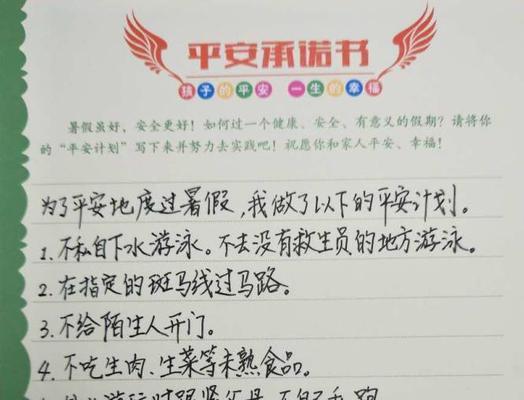 平安承诺书
孩子的平安 一生的幸福
暑假虽好，安全更好！如何过一个健康、安全、有意义的假期？请将你
的“平安计划”写下来并努力去实践吧！祝愿你和家人平安、幸福！
为了平安地度过暑假，我做了以下的平安计划。
1.不私自下水游泳。不去没有救生员的地方游泳。
2.在指定的斑马线过马路。
3.不给陌生人开门。
4.不吃生肉、生菜等未熟食品。